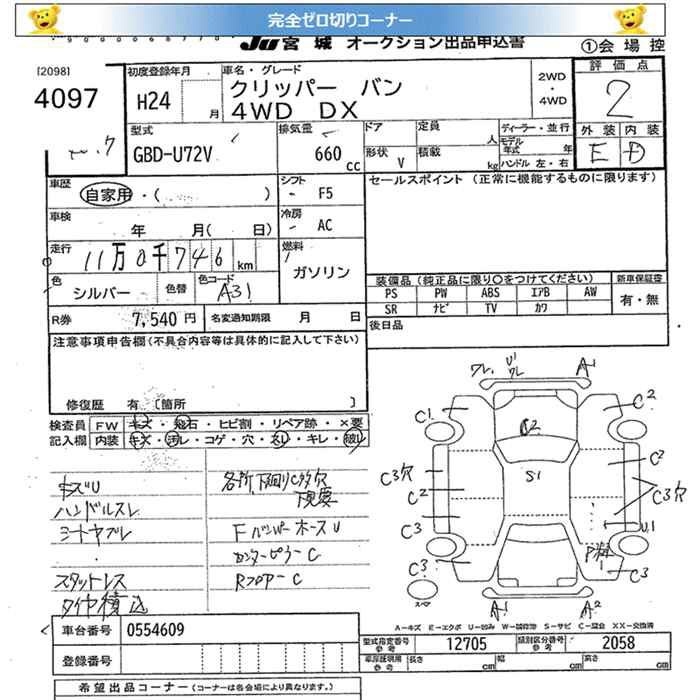 完全ゼロ切りコーナー
JU 宮城 オークション出品申込書 ①会場控
[2098]
4097
初度登録年月 H24 月
車名・グレード
クリッパー バン
4WD DX
2WD・4WD
評価点
2
外装 内装
E D
型式
GBD-U72V
排気量
660 cc
ドア 定員 人
形状 V 積載 kg
ディーラー・並行
モデル年式 年
ハンドル 左・右
車歴 自家用・( )
シフト F5
セールスポイント (正常に機能するものに限ります)
車検 年 月( 日)
冷房 AC
走行 11万0千746km
燃料 ガソリン
色 シルバー 色替 色コード A31
装備品 (純正品に限り○をつけてください) 新車保証書
PS PW ABS エアB AW 有・無
SR ナビ TV カワ
R券 7,540円 名変通知期限 月 日
後日品
注意事項申告欄(不具合内容等は具体的に記入して下さい)
修復歴 有 [箇所 ]
検査員 FW キズ・飛石・ヒビ割・リペア跡・×要
記入欄 内装 キズ・汚レ・コゲ・穴・スレ・キレ・破レ
キズU
ハンドルスレ
シートヤブレ
スタットレス
タイヤ積込
各所、下廻りC多欠
下見要
FバンパーホースU
センターピラーC
RフロアーC
ワレ U1 ワレ A1
C1 C2
C2
C3穴 S1 C3
C2 C3穴
C3 U1
C3
スペア A1 A2
A-キズ E-エクボ U-凹み W-補修跡 S-サビ C-腐食 XX-交換済
車台番号 0554609
型式指定番号 参考 12705 類別区分番号 参考 2058
登録番号
車庫証明用 参考 長さ cm 幅 cm 高さ cm
希望出品コーナー (コーナーは各会場により異なります。)